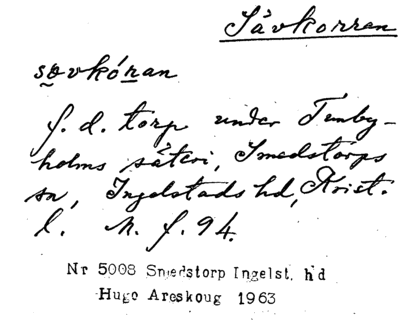 Sävkorran
søvkóran
f. d. torp under Tunby-
holms säteri, Smedstorps
sn, Ingelstads hd, Krist.
l. M. f. 94.
Nr 5008 Smedstorp Ingelst. hd
Hugo Areskoug 1963